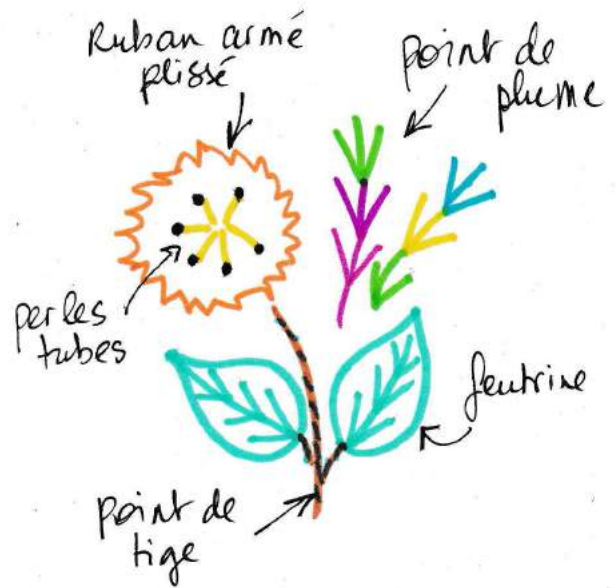 Ruban armé
plissé
point de
plume
perles
tubes
feutrine
point de
tige